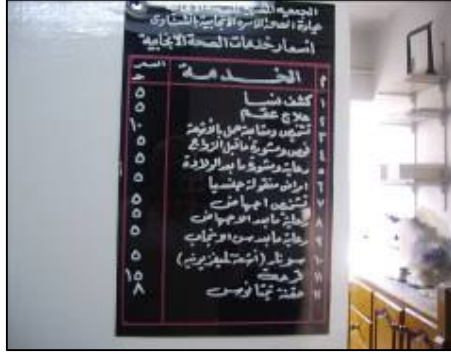 الجمعيه
عيادة الصحة
أسعار خدمات الصحة الانجابية
م الخدمة السعر
ج
١ كشف نسا ٥
٢ علاج عقم ٥
٣ تشخيص ومتابعة حمل بالأشعة ١٠
٤ فحص ومشورة ماقبل الزواج ٥
٥ رعاية ومشورة ما بعد الولادة ٥
٦ امراض منقولة جنسيا ٥
٧ تشخيص اجهاض ٥
٨ رعاية مابعد الاجهاض ٥
٩ رعاية مابعد سن الانجاب ٥
١٠ سونار (أشعة تليفزيونيه) ٥
١١ ١٥
١٢ حقنة تيتانوس ٨